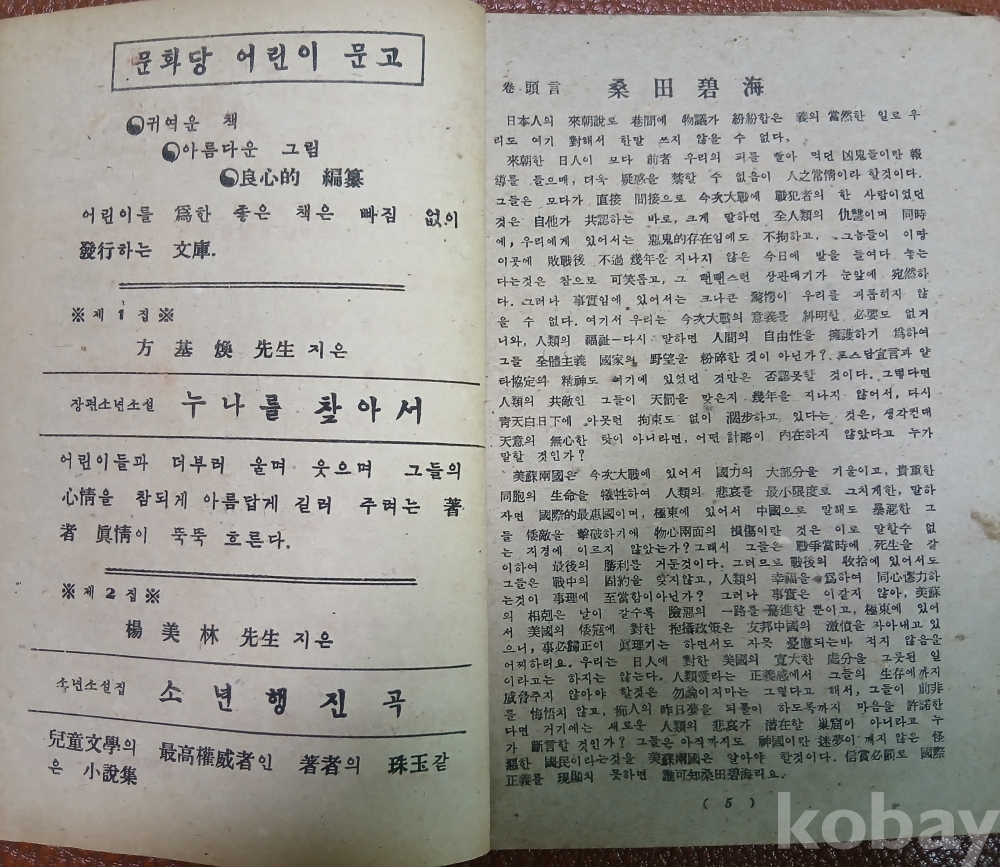 문화당 어린이 문고
귀여운 책
아름다운 그림
良心的 編纂
어린이를 爲한 좋은 책은 빠짐 없이
發行하는 文庫.
※제1집※
方基煥 先生 지은
장편소년소설 누나를 찾아서
어린이들과 더부러 울며 웃으며 그들의
心情을 참되게 아름답게 길러 주려는 著
者 眞情이 뚝뚝 흐른다.
※제2집※
楊美林 先生 지은
소년소설집 소년행진곡
兒童文學의 最高權威者인 著者의 珠玉같
은 小說集
卷頭言 桑田碧海
日本人의 來朝說로 巷間에 物議가 紛紛함은 義의 當然한 일로 우
리도 여기 對해서 한말 쓰지 않을 수 없다.
來朝한 日人이 모다 前者 우리의 피를 빨아 먹던 凶鬼들이란 報
導를 들으매, 더욱 疑惑을 禁한 수 없음이 人之常情이라 할것이다.
그들은 모다가 直接 間接으로 今次大戰에 戰犯者의 한 사람이었던
것은 自他가 共認하는 바로, 크게 말하면 全人類의 仇讐이며 同時
에, 우리에게 있어서는 惡鬼的存在임에도 不拘하고, 그놈들이 이땅
이곳에 敗戰後 不過 幾年을 지나지 않은 今日에 발을 들여다 놓는
다는것은 참으로 可笑롭고, 그 뺀뺀스런 상판대기가 눈앞에 宛然하
다. 그러나 事實임에 있어서는 크나큰 驚愕이 우리를 괴롭히지 않
을 수 없다. 여기서 우리는 今次大戰의 意義를 糾明할 必要도 없거
니와, 人類의 福祉—다시 말하면 人間의 自由性을 擁護하기 爲하여
그들 全體主義 國家의 野望을 粉碎한것이 아닌가? 포스담宣言과 얄
타協定의 精神도 여기에 있었던 것만은 否認못할 것이다. 그렇다면
人類의 共敵인 그들이 天罰을 맞은지 幾年을 지나지 않어서, 다시
靑天白日下에 아뭇런 拘束도 없이 濶步하고 있다는 것은, 생각컨대
天意의 無心한 탓이 아니라면, 어떤 計略이 內在하지 않았다고 누가
말할 것인가?
美蘇兩國은 今次大戰에 있어서 國力의 大部分을 기울이고, 貴重한
同胞의 生命을 犧牲하여 人類의 悲哀를 最小限度로 그치게한, 말하
자면 國際的最惠國이며, 極東에 있어서 中國으로 말해도 暴惡한 그
들 倭敵을 擊破하기에 物心兩面의 損傷이란 것은 이로 말할수 없
는 지경에 이르지 않았는가? 그래서 그들은 戰爭當時에 死生을 같
이하여 最後의 勝利를 거둔것이다. 그러므로 戰後의 收拾에 있어서도
그들은 戰中의 固約을 잊지않고, 人類의 幸福을 爲하여 同心協力하
는것이 事理에 至當함이아닌가? 그러나 事實은 이같지 않아, 美蘇
의 相剋은 날이 갈수록 險惡의 一路를 驀進할 뿐이고, 極東에 있어
서 美國의 倭寇에 對한 抱攝政策은 友邦中國의 激憤을 자아내고 있
으니, 事必歸正이 眞理기는 하면서도 자못 憂慮되는바 적지 않음을
어찌하리요. 우리는 日人에 對한 美國의 寬大한 處分을 그릇된 일
이라고는 하지는 않는다. 人類愛라는 正義感에서 그들의 生存에까지
威脅주지 않아야 할것은 勿論이지마는 그렇다고 해서, 그들이 前非
를 悔悟치 않고, 痴人의 昨日夢을 되풀이 하도록까지 마음을 許諾한
다면 거기에는 새로운 人類의 悲哀가 潛在할 巢窟이 아니라고 누
가 斷言할 것인가? 그들은 아직까지도 神國이란 迷夢이 깨지 않은 怪
惡한 國民이라는것을 美蘇兩國은 알아야 할것이다. 信賞必罰로 國際
正義를 現顯치 못하면 誰可知桑田碧海리요.
( 5 )
kobay